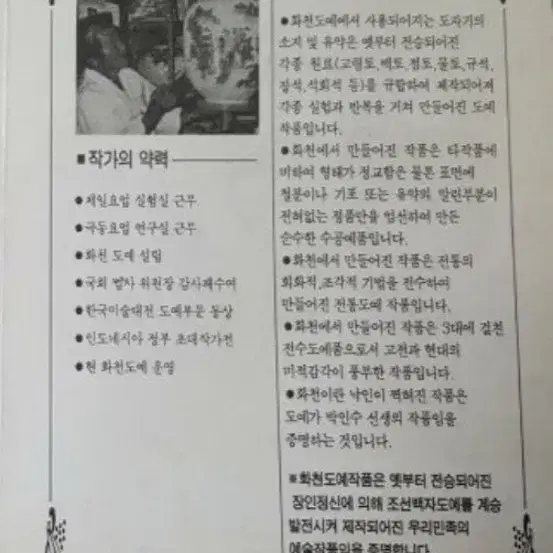 ■작가의 약력
●제일요업 실험실 근무
●극동요업 연구실 근무
●화천 도예 설립
●국회 법사 위원장 감사패수여
●한국미술대전 도예부문 동상
●인도네시아 정부 초대작가전
●현 화천도예 운영
●화천도예에서 사용되어지는 도자기의
소지 및 유약은 옛부터 전승되어진
각종 원료(고령토,백토,점토,물토,규석,
장석,석회석 등)를 규합하여 제작되어져
각종 실험과 반복을 거쳐 만들어진 도예
작품입니다.
●화천에서 만들어진 작품은 타작품에
비하여 형태가 정교함은 물론 표면에
철분이나 기포 또는 유약의 말린부분이
전혀없는 정품만을 엄선하여 만든
순수한 수공예품입니다.
●화천에서 만들어진 작품은 전통의
회화적,조각적 기법을 전수하여
만들어진 전통도예 작품입니다.
●화천에서 만들어진 작품은 3대에 걸친
전수도예품으로서 고전과 현대의
미적감각이 풍부한 작품입니다.
●화천이란 낙인이 찍혀진 작품은
도예가 박인수 선생의 작품임을
증명하는 것입니다.
■화천도예작품은 옛부터 전승되어진
장인정신에 의해 조선백자도예를 계승
발전시켜 제작되어진 우리민족의
예술작품임을 증명합니다